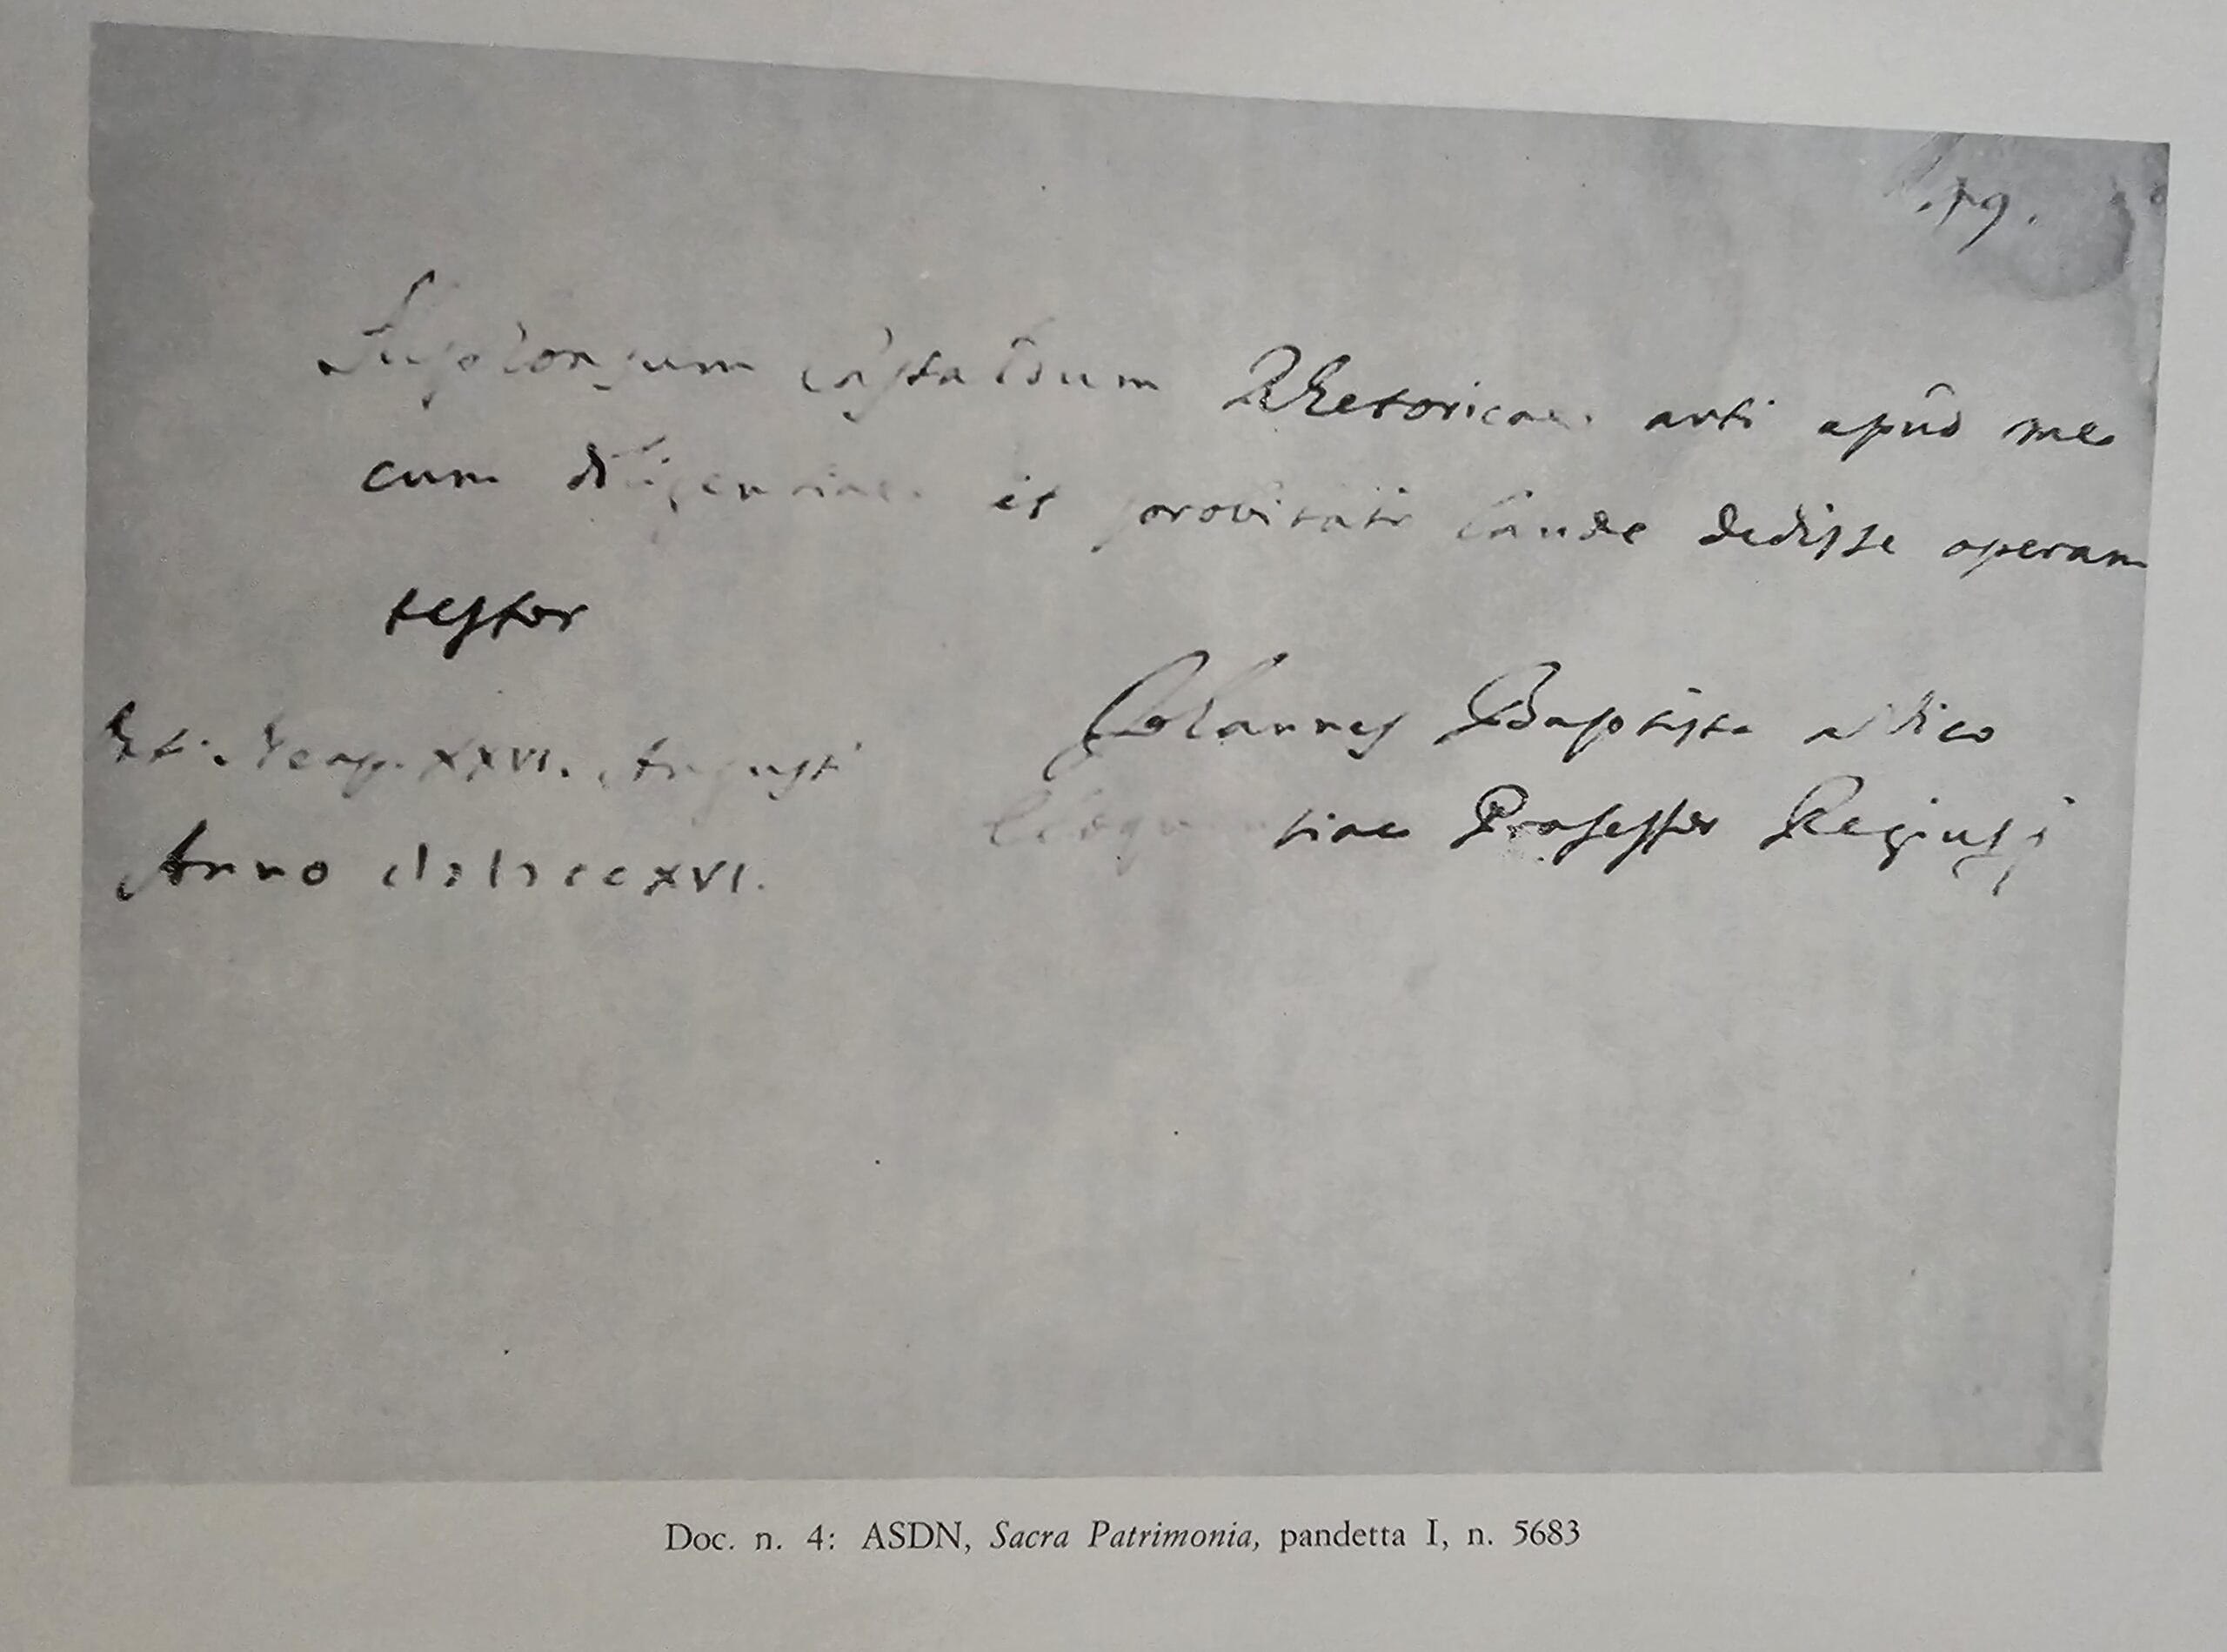 .19.
Rhetoricae arti apud me
cum diligentiae et probitatis laude dedisse operam
testor
Dat. Neap. XXVI. Augusti
Johannes Baptista a Vico
Anno cIɔIɔccxvi.
Eloquentiae Professor Regius
Doc. n. 4: ASDN, Sacra Patrimonia, pandetta I, n. 5683